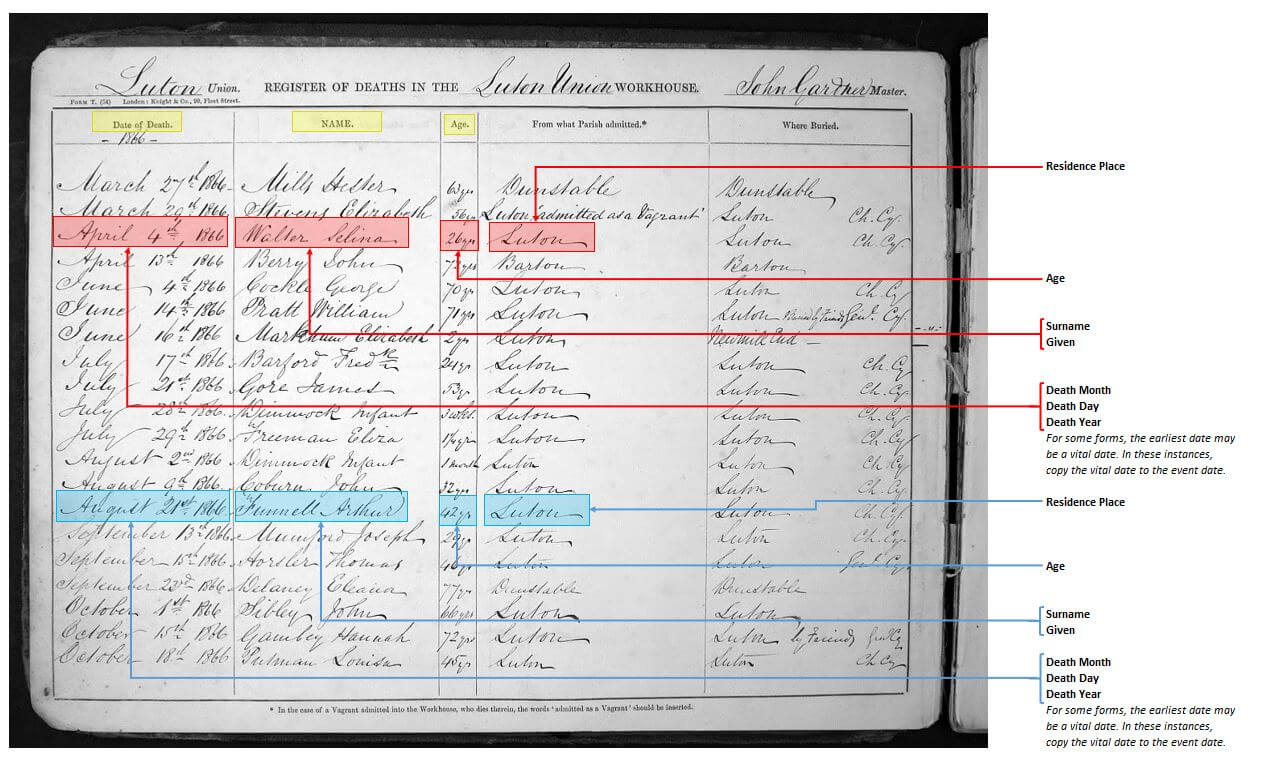 Luton Union. REGISTER OF DEATHS IN THE Luton Union WORKHOUSE. John Gardner Master.
FORM T. (54) London: Knight & Co., 90, Fleet Street.
Date of Death. NAME. Age. From what Parish admitted.* Where Buried.
- 1866 -
March 27th 1866 Mills Hester 63 yrs Dunstable Dunstable
March 29th 1866 Stevens Elizabeth 56 yrs Luton 'admitted as a Vagrant' Luton Ch. Cy.
April 4th, 1866 Walter Selina 26 yrs Luton Luton Ch. Cy.
April 13th 1866 Berry John 72 yrs Barton Barton
June 4th 1866 Cockle George 70 yrs Luton Luton Ch. Cy.
June 14th 1866 Pratt William 71 yrs Luton Luton Buried by Friends Genl. Cy.
June 16th 1866 Markham Elizabeth 2 yrs Luton Newmill End -
July 17th 1866 Barford Fredk Luton Luton Ch. Cy.
July 21st 1866 Gore James 53 yrs Luton Luton Ch. Cy.
July 28th 1866 Dimmock Infant 3 wks. Luton Luton Ch. Cy.
July 29th 1866 Freeman Eliza Luton Luton Ch. Cy.
August 2nd 1866 Dimmock Infant 1 month Luton Luton Ch. Cy.
August 9th 1866 Coburn John 32 yrs Luton Luton Ch. Cy.
August 21st 1866 Funnell Arthur 42 yrs Luton Luton Ch. Cy.
September 13th 1866 Mumford Joseph 29 yrs Luton Luton Ch. Cy.
September 15th 1866 Horsler Thomas 46 yrs Luton Luton Genl. Cy.
September 23rd 1866 Delaney Eleanor 77 yrs Dunstable Dunstable
October 1st 1866 Sibley John 66 yrs Luton Luton
October 15th 1866 Gambey Hannah 72 yrs Luton Luton by Friends Genl Cy
October 18th 1866 Putman Louisa 45 yrs Luton Luton Ch. Cy
* In the case of a Vagrant admitted into the Workhouse, who dies therein, the words 'admitted as a Vagrant' should be inserted.
Residence Place
Age
Surname
Given
Death Month
Death Day
Death Year
For some forms, the earliest date may
be a vital date. In these instances,
copy the vital date to the event date.
Residence Place
Age
Surname
Given
Death Month
Death Day
Death Year
For some forms, the earliest date may
be a vital date. In these instances,
copy the vital date to the event date.